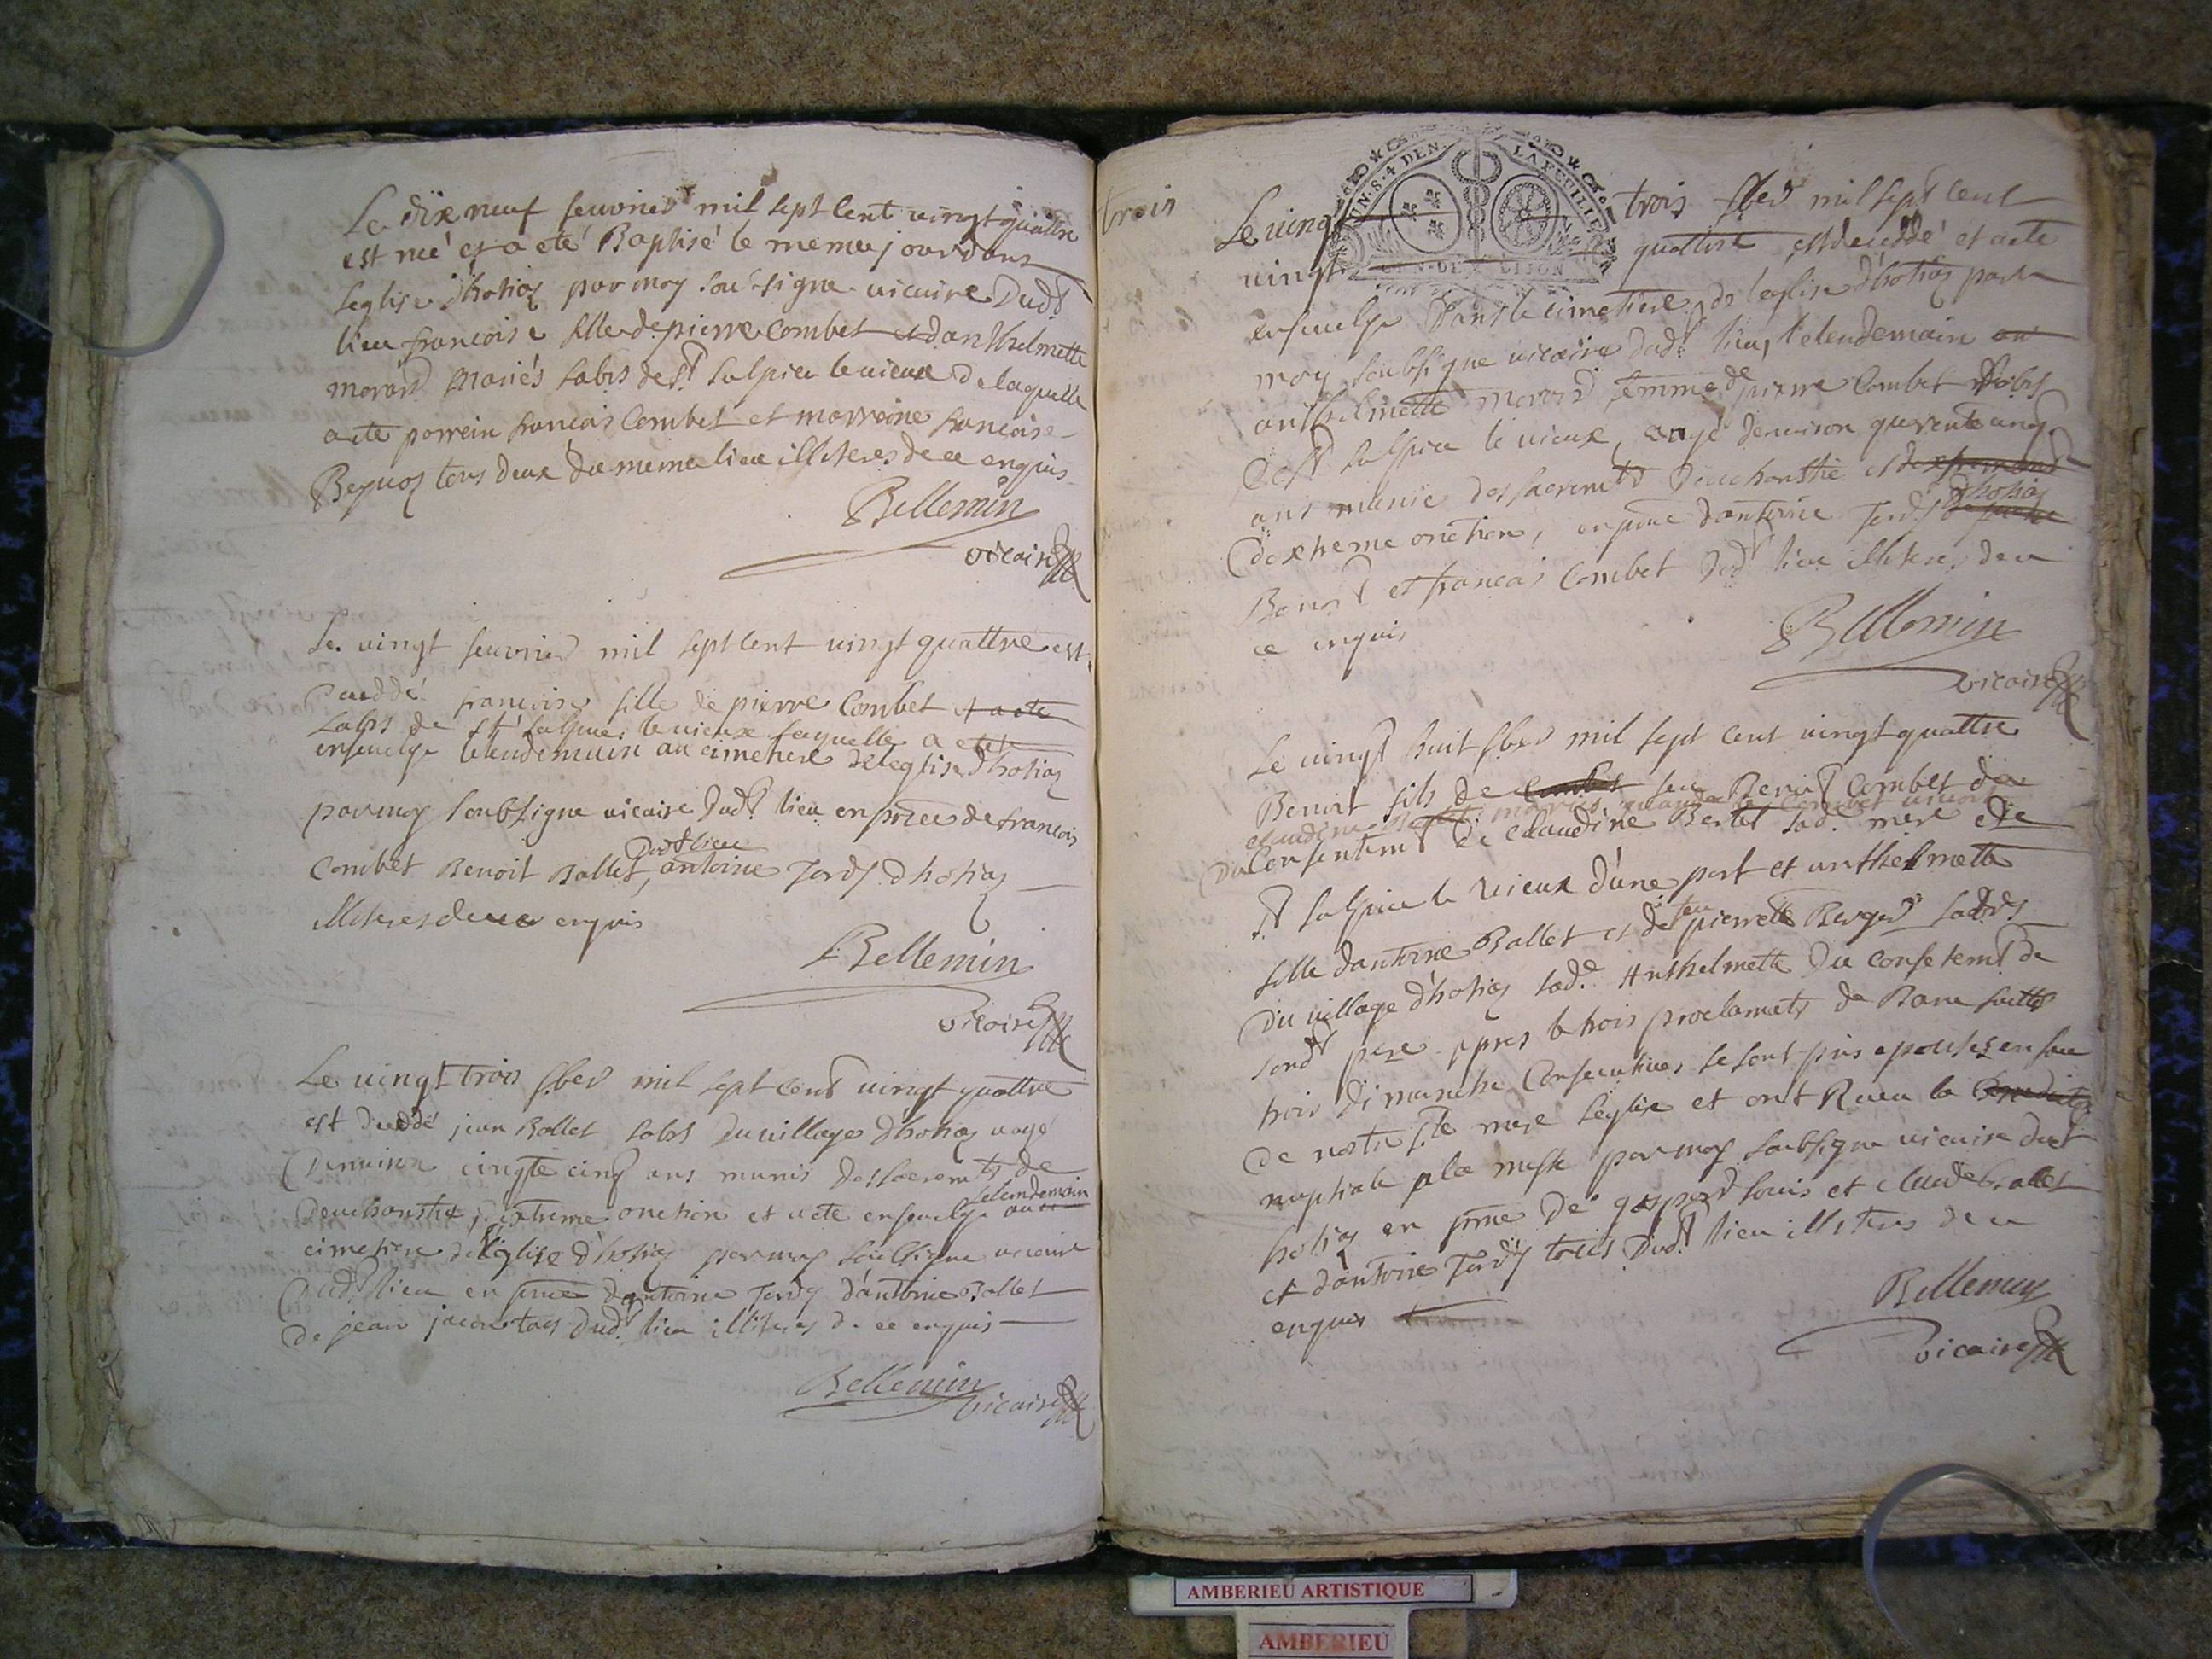 Le dix neuf feuvrier mil sept cent vingt quattre
est née et a eté Baptisé le meme jour dans
leglise d'hotias par moy sousigne vicaire dudt
lieu francoise fille de pierre combet et d'anthelmette
morard mariés labrs de st sulpice le vieux de laquelle
a ete parrein francois Combet et marreine francoise
tous deux du meme lieu illiteres de ce enquis
Bellemin
vicaire
Le vingt feuvrier mil sept cent vingt quattre est
deceddé francoise fille de pierre Combet et a ete
labrs de st sulpice le vieux laquelle a ete
ensevelye le lendemain au cimetiere de leglise d'hotias
par moy soubsigne vicaire dudt lieu en pnce de francois
dudt lieu
Combet Benoit Ballet, antoine Tardy d'hotias
illiteres de ce enquis
Bellemin
vicaire
Le vingt trois 8ber mil sept cent vingt quattre
est deceddé jean Ballet labrs du village d'hotias aagé
denviron cinqte cinq ans munis des sacremts de
le lendemain
deucharistie, d'extreme onction et a ete ensevelye au
cimetiere de l'eglise d'hotias par moy soubsigne vicaire
dudt lieu en pnce d'antoine Tardy d'antoine Ballet
de jean tous dudt lieu illiteres de ce enquis
Bellemin
vicaire
trois
UN.S.4 DEN. LA FEUILLE
GEN. DE DIJON
Le vingt trois 8ber mil sept cent
vingt quattre est deceddé et a ete
ensevelye dans le cimetiere de leglise d'hotias par
moy soubsigne vicaire dudt lieu, le lendemain
anthelmette morard femme de pierre Combet labrs
de st sulpice le vieux, aagé denviron quarente cinq
ans munie des sacremts deucharistie et
d'hotias
dextreme onction, en pnce dantoine Tardy
Benoit et francois Combet dudt lieu illiteres de
ce enquis
Bellemin
vicaire
Le vingt huit 8ber mil sept cent vingt quattre
Benoit fils de Combet feu Benoit Combet de
claudine
du Consentemt de claudine Bertet sad. mere de
st sulpice le vieux d'une part et anthelmette
feu
fille dantoine Ballet et de pierrette Berger labrs
du village d'hotias lade Anthelmette du consetemt de
sondt pere apres le trois proclamats de Banc faittes
trois dimanche Consecutives se sont pris epouses en face
de nostre ste mere leglise et ont Receu la Benedicti
nuptiale a la messe par moy soubsigne vicaire dudt
hotias en pnce de gaspard louis et claude Ballet
et d'antoine Tardy tous dudt lieu illiteres de ce
enquis
Bellemin
vicaire
AMBERIEU ARTISTIQUE
AMBERIEU